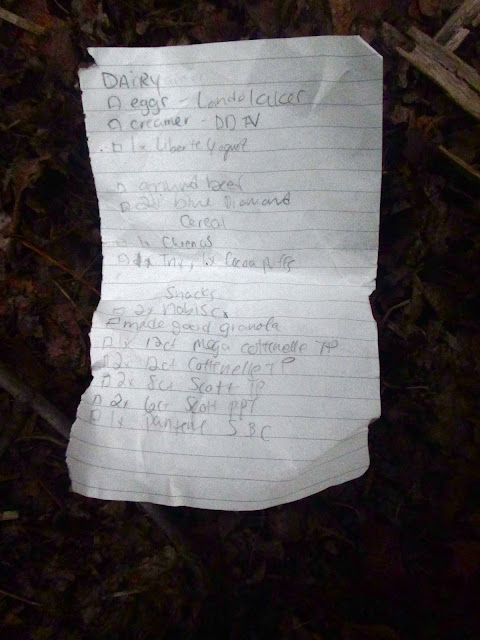 DAIRY
eggs - Landolakes
creamer - DD FV
1x Liberte Yogurt
ground beef
2x blue Diamond
Cereal
1x Cheerios
1x Trix, 1x Cocoa puffs
Snacks
2x Nabisco
made good granola
1x 12ct Mega cottenelle TP
2x 12ct Cottenelle TP
2x 8ct Scott TP
2x 6ct Scott PPT
1x pantene S & C